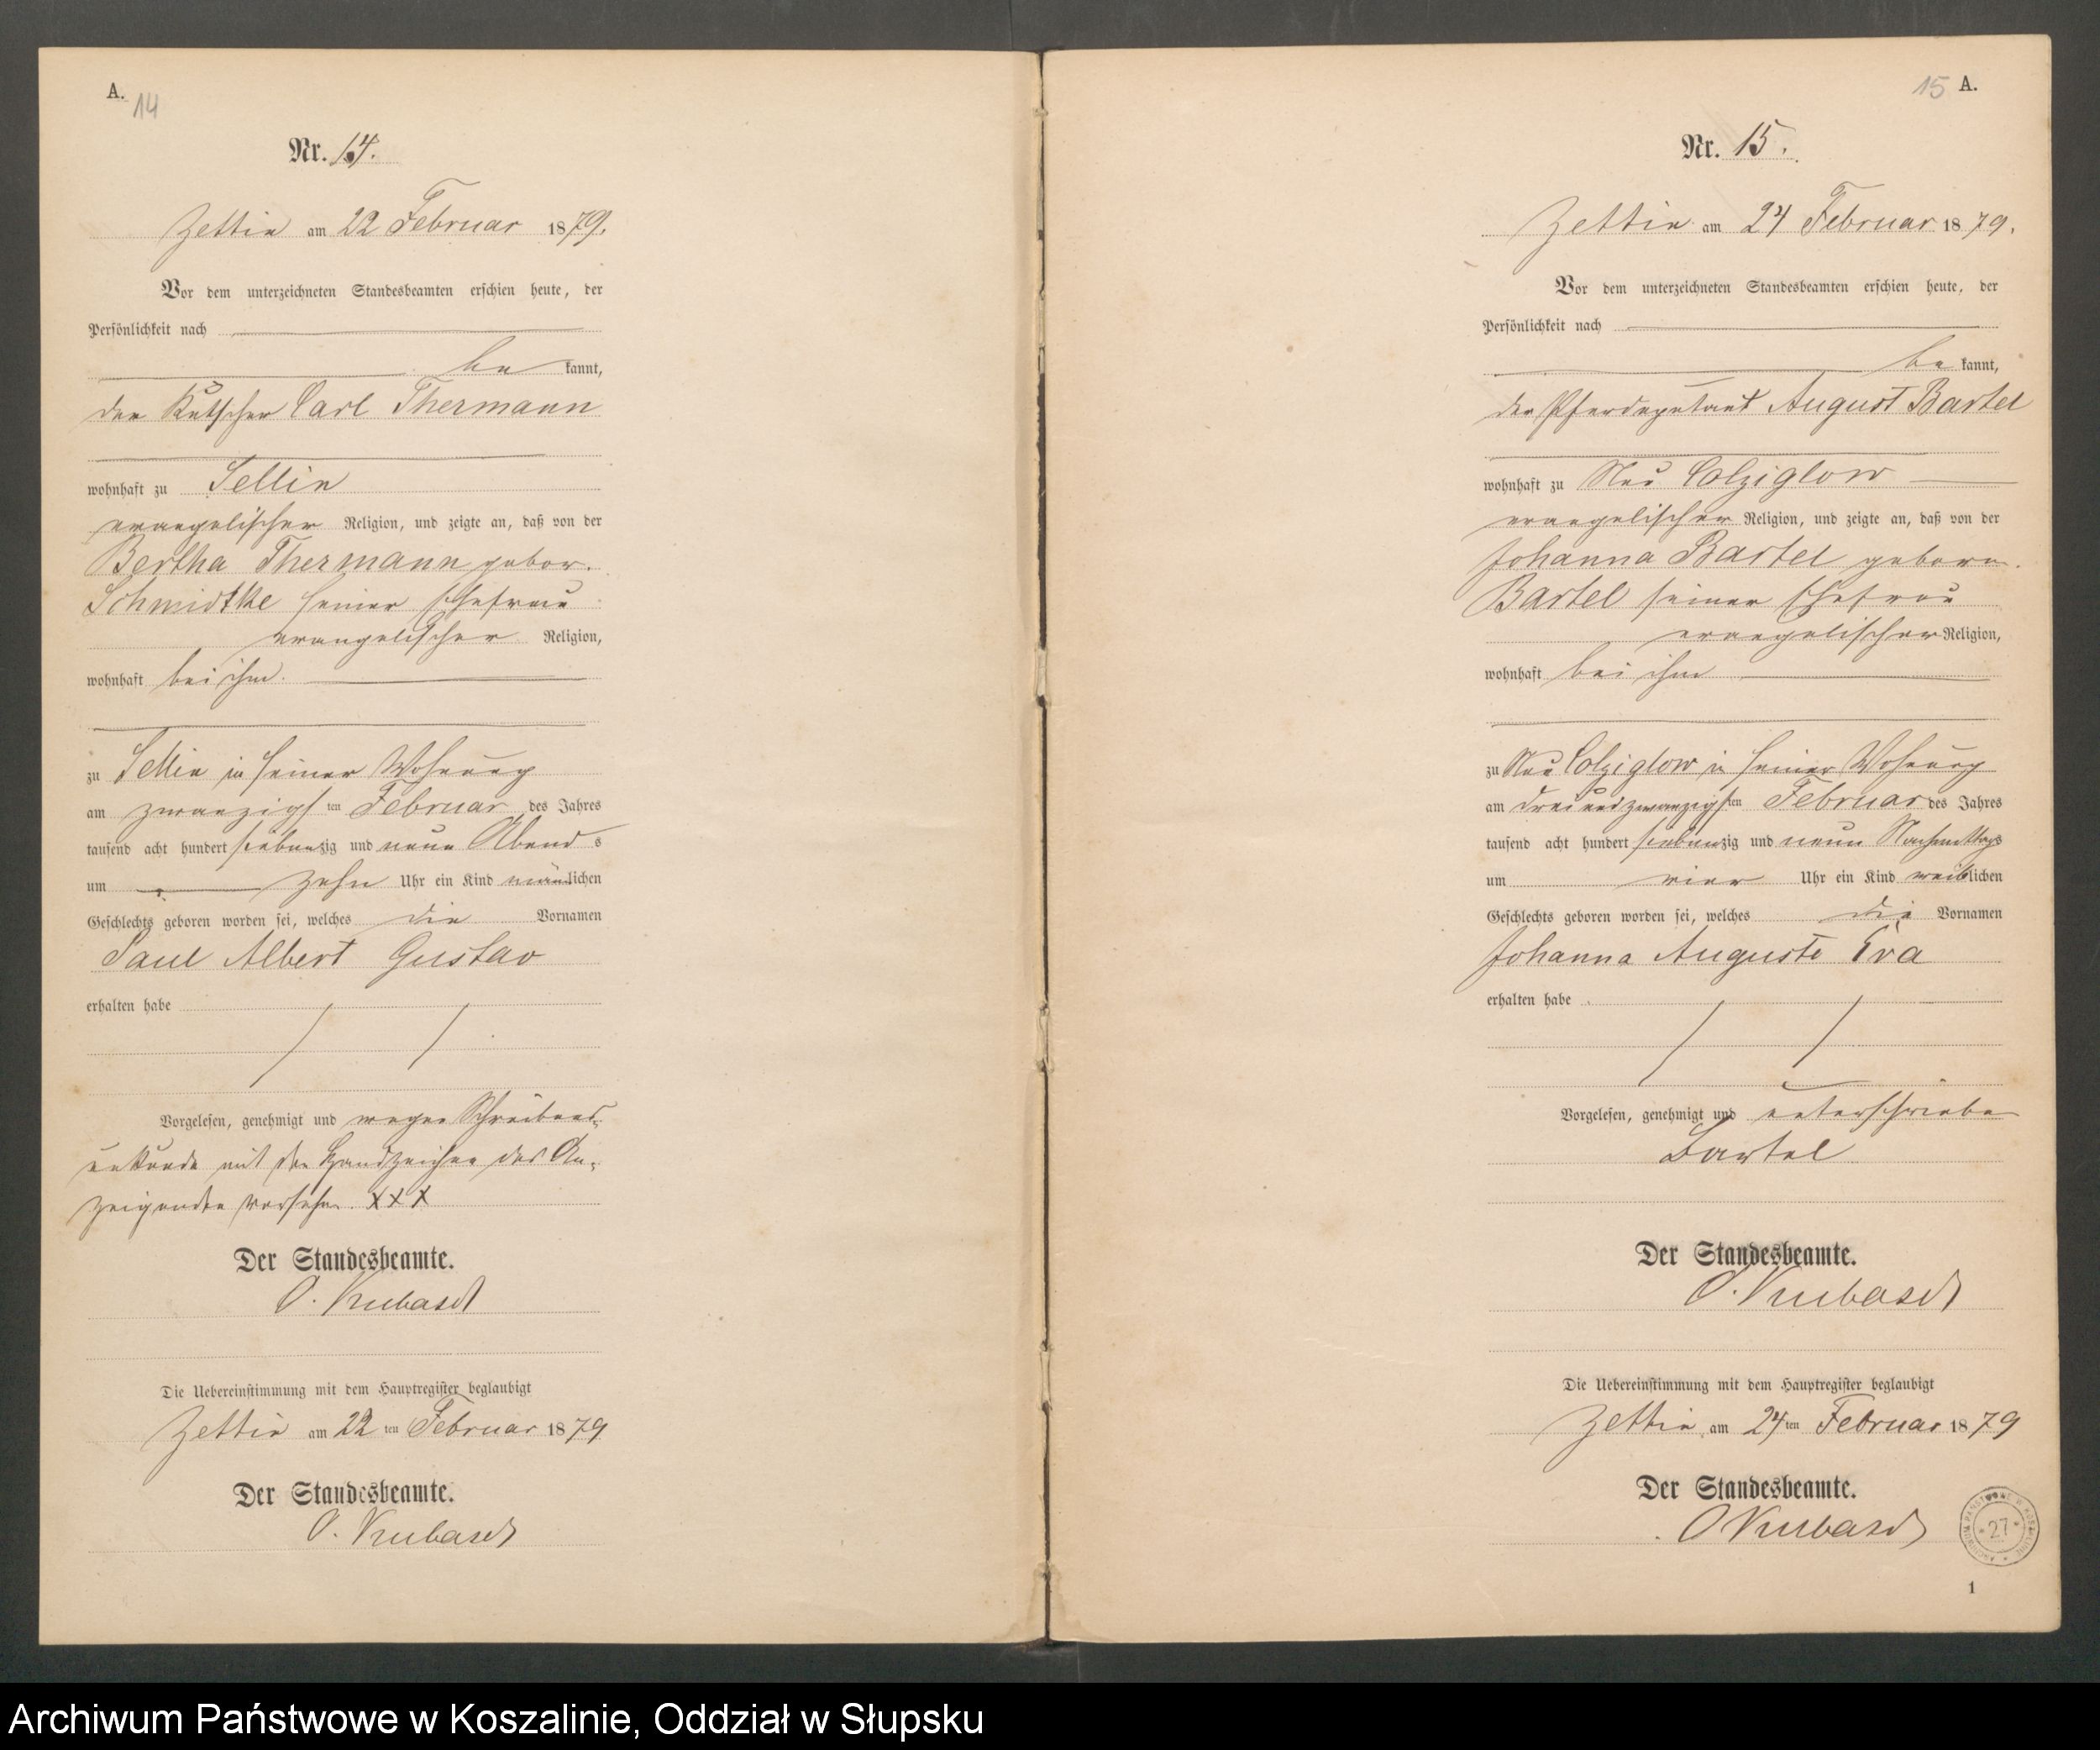 A.
14
Nr. 14.
Zettin am 22 Februar 1879.
Vor dem unterzeichneten Standesbeamten erschien heute, der
Persönlichkeit nach
be kannt,
der Kutscher Carl Thermann
wohnhaft zu Sellin
evangelischer Religion, und zeigte an, daß von der
Bertha Thermann gebor.
Schmidtke seiner Ehefrau
evangelischer Religion,
wohnhaft bei ihm.
zu Sellin in seiner Wohnung
am zwanzigsten Februar des Jahres
tausend acht hundert siebenzig und neun Abends
um zehn Uhr ein Kind mänlichen
Geschlechts geboren worden sei, welches die Vornamen
Paul Albert Gustav
erhalten habe
Vorgelesen, genehmigt und wegen Schreibens-
unkunde mit den Handzeichen des An-
zeigenden versehn. XXX
Der Standesbeamte.
O. Kubasch
Die Uebereinstimmung mit dem Hauptregister beglaubigt
Zettin am 22ten Februar 1879
Der Standesbeamte.
O. Kubasch
15 A.
Nr. 15.
Zettin am 24 Februar 1879.
Vor dem unterzeichneten Standesbeamten erschien heute, der
Persönlichkeit nach
be kannt,
der Pferdeputant August Bartel
wohnhaft zu Neu Colziglow
evangelischer Religion, und zeigte an, daß von der
Johanna Bartel geborn.
Bartel seiner Ehefrau
evangelischer Religion,
wohnhaft bei ihm
zu Neu Colziglow in seiner Wohnung
am dreiundzwanzigsten Februar des Jahres
tausend acht hundert siebenzig und neun Nachmittags
um vier Uhr ein Kind weiblichen
Geschlechts geboren worden sei, welches die Vornamen
Johanna Auguste Eva
erhalten habe
Vorgelesen, genehmigt und unterschrieben
Bartel
Der Standesbeamte.
O. Kubasch
Die Uebereinstimmung mit dem Hauptregister beglaubigt
Zettin am 24ten Februar 1879
Der Standesbeamte.
O Kubasch
ARCHIWUM PAŃSTWOWE W KOSZALINIE
* 27 *
1
Archiwum Państwowe w Koszalinie, Oddział w Słupsku